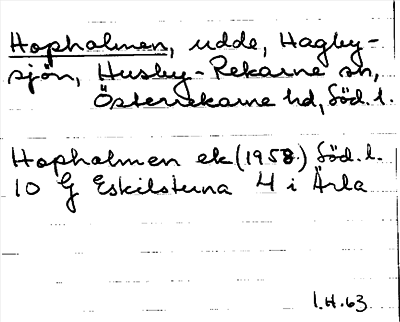 Hopholmen, udde, Hagby-
sjön, Husby-Rekarne sn,
Österrekarne hd, Söd. l.
Hopholmen ek (1958) Söd. l.
10 G Eskilstuna 4 i Ärla
I.H.63